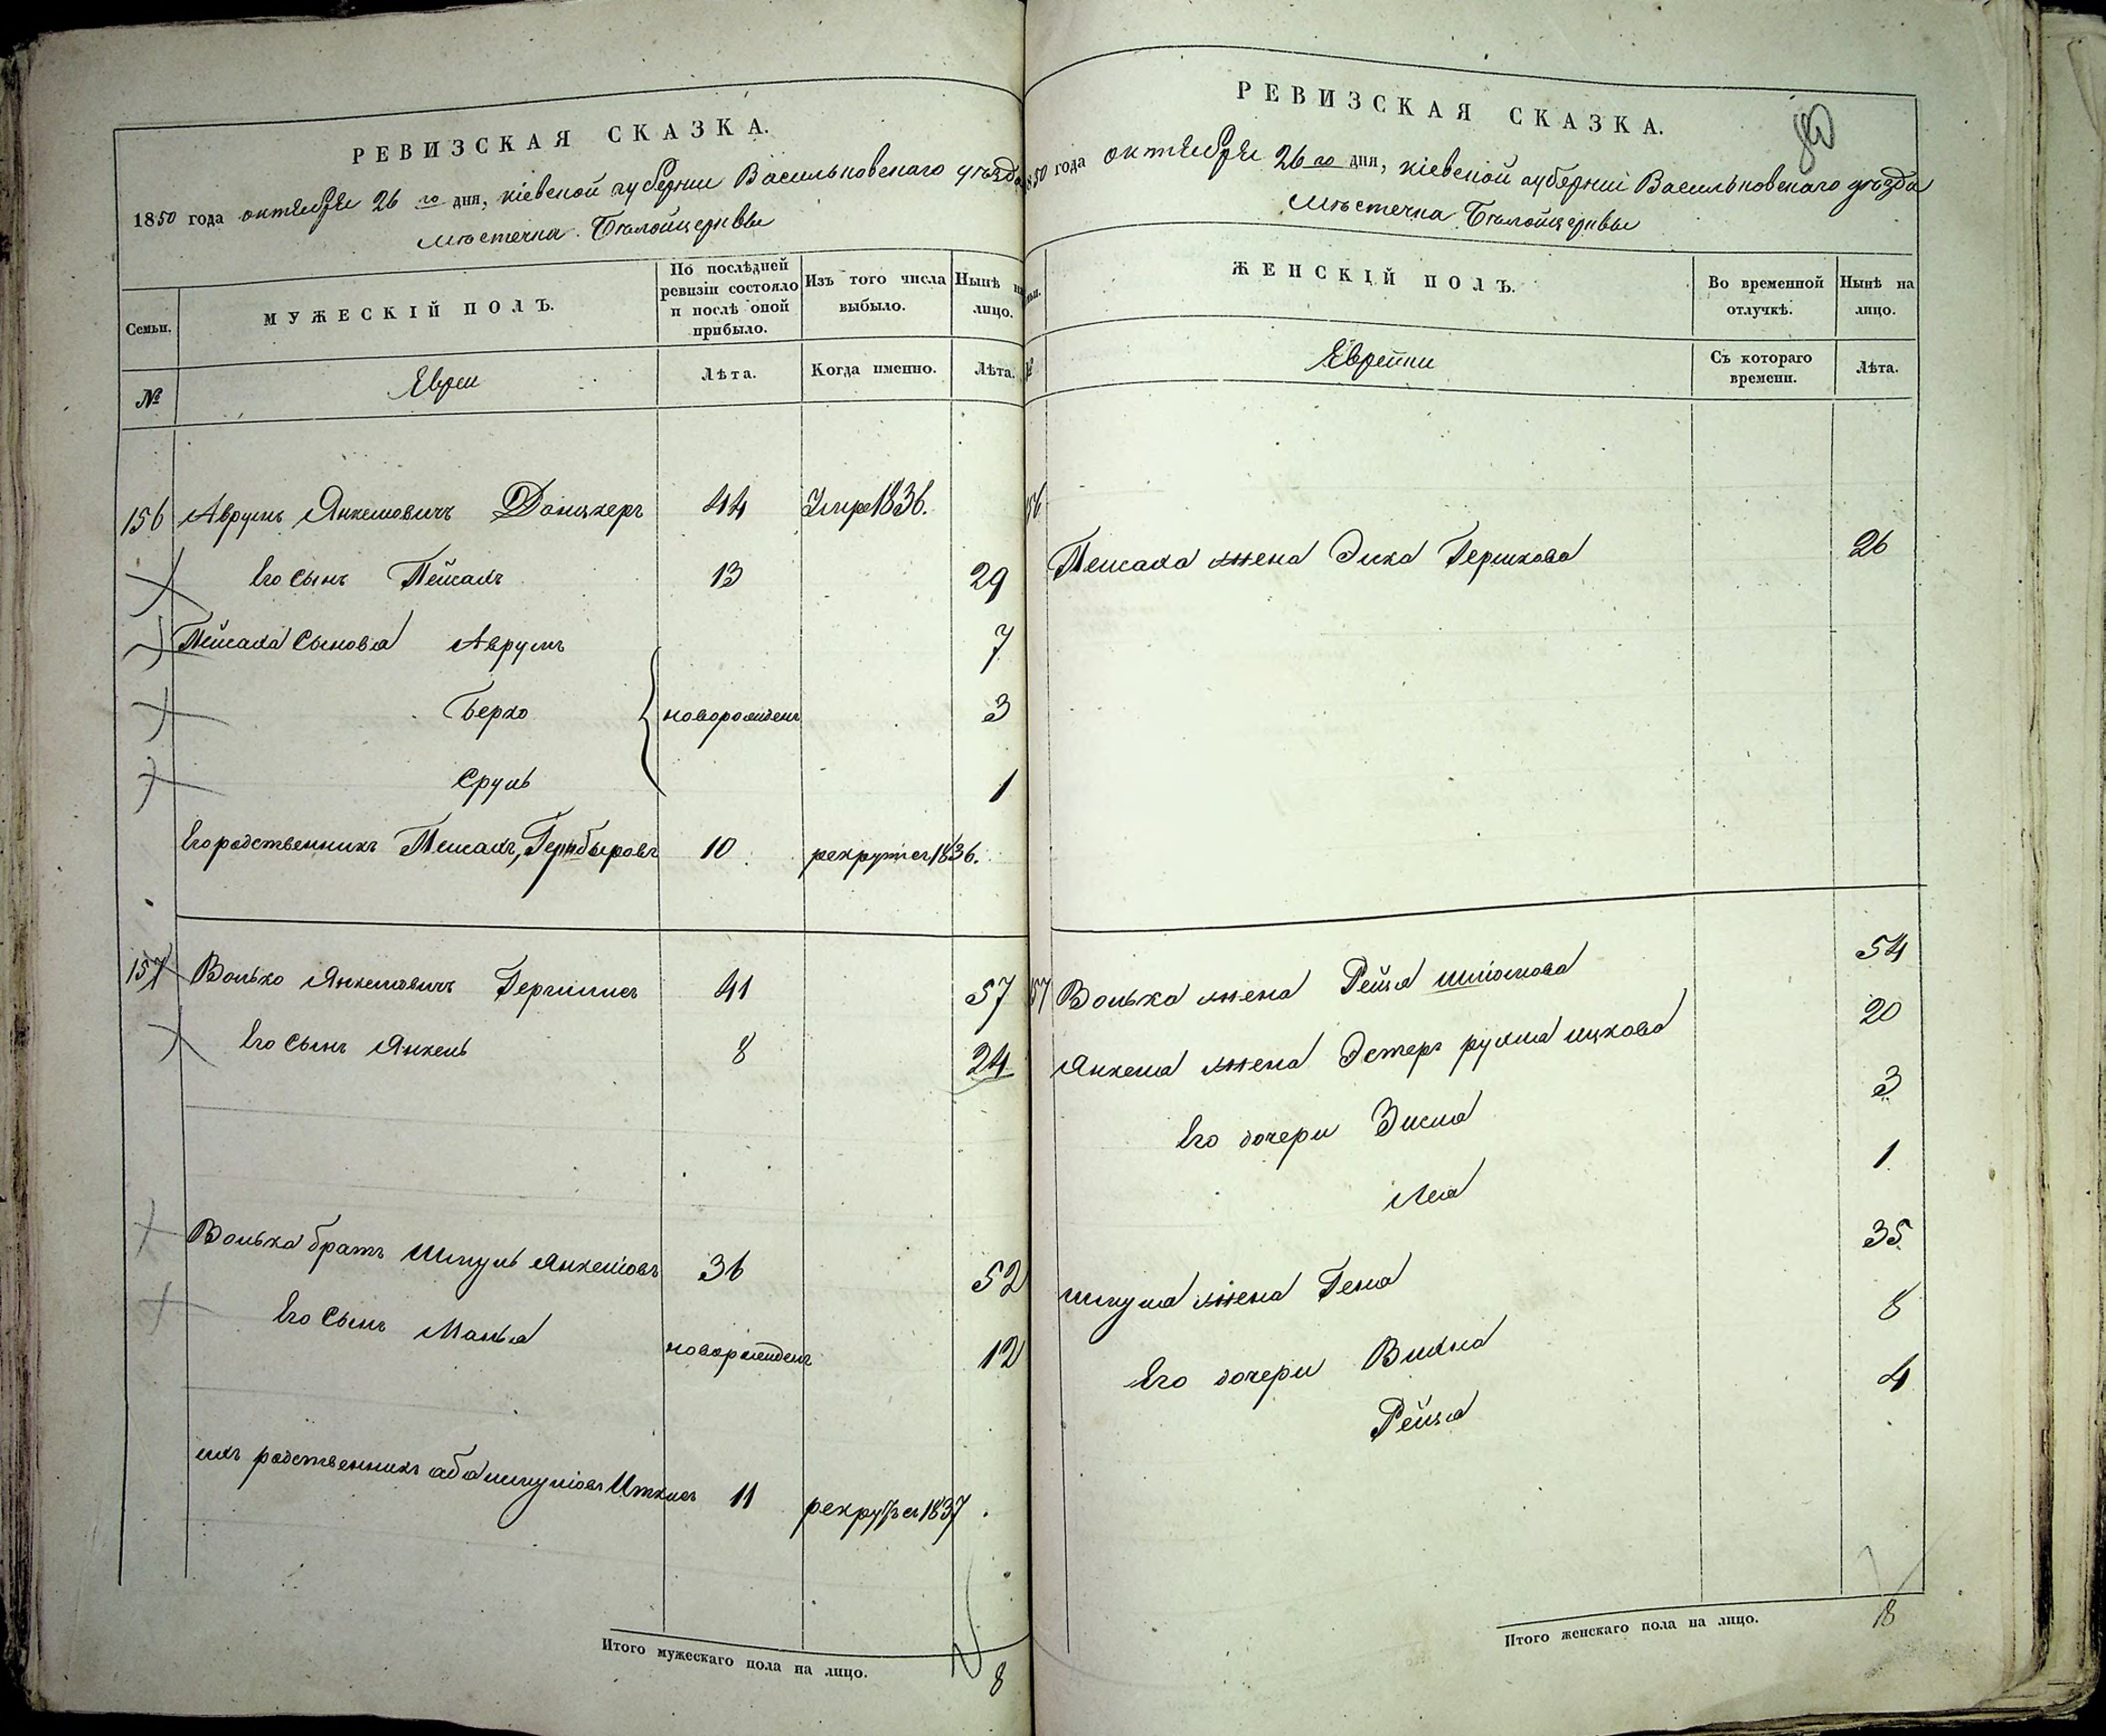 РЕВИЗСКАЯ СКАЗКА.
1850 года октября 26 го дня, кіевской губерніи Васильковскаго уѣзда
мѣстечка Бѣлойцерквы
Семьи.
МУЖЕСКІЙ ПОЛЪ.
По послѣдней ревизіи состояло и послѣ оной прибыло.
Изъ того числа выбыло.
Нынѣ на лицо.
№
Евреи
Лѣта.
Когда именно.
Лѣта.
156 Аврумъ Янкелевичъ Донцкеръ 44 Умре 1836.
Его сынъ Пейсахъ 13 29
Пейсаха сыновья Аврумъ 7
Берко новорожденъ 3
Сруль 1
Его родственникъ Пейсахъ, 10 рекрутѣ съ 1836.
157 Волько Янкелевичъ 41 57
Его сынъ Янкель 8 24
Волька братъ Шмуль Янкеліовъ 36 52
Его сынъ новорожденъ 12
ихъ родственникъ аба шмуліовъ Иткисъ 11 рекрутѣ съ 1837.
Итого мужескаго пола на лицо. 8
РЕВИЗСКАЯ СКАЗКА.
80
1850 года октября 26 го дня, кіевской губерніи Васильковскаго уѣзда
мѣстечка Бѣлойцерквы
ЖЕНСКІЙ ПОЛЪ.
Во временной отлучкѣ.
Нынѣ на лицо.
№
Еврейки
Съ котораго времени.
Лѣта.
156
Пейсаха жена Гершкова 26
157 Волька жена Рейза шліомова 54
Янкеля жена Эстеръ рухля ицкова 20
Его дочери Зисля 3
Лея 1
шмуля жена Геня 35
Его дочери 8
Рейзя 4
Итого женскаго пола на лицо. 8